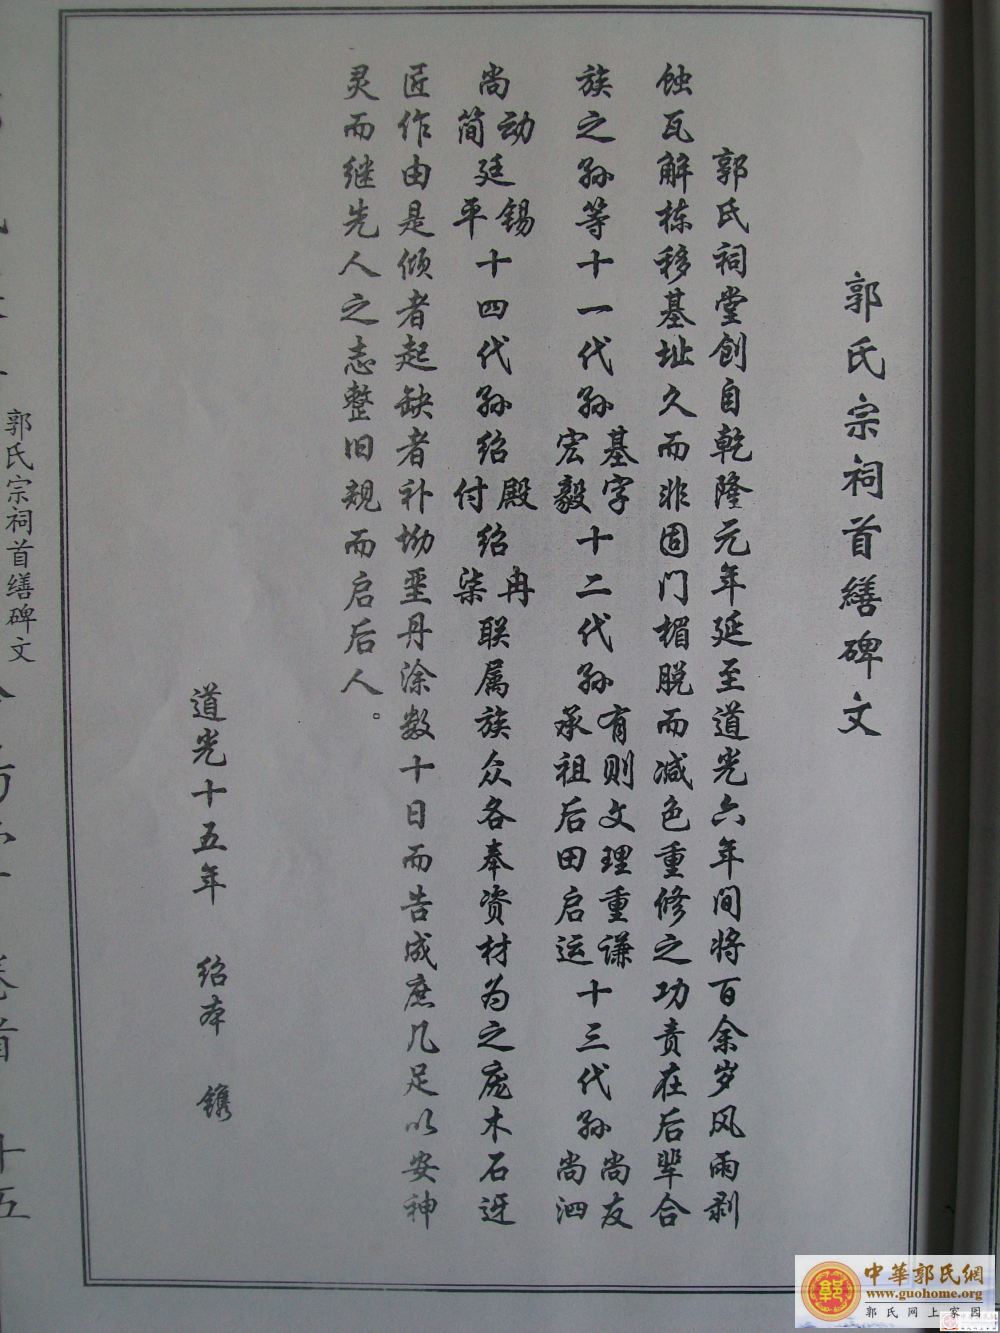 郭氏宗祠首缮碑文
郭氏祠堂创自乾隆元年延至道光六年间将百余岁风雨剥
蚀瓦解栋移基址久而非固门楣脱而减色重修之功责在后辈合
族之孙等十一代孙基字宏毅十二代孙有则文理重谦承祖后田启运十三代孙尚友尚泗
尚动简廷锡平十四代孙绍殿付绍冉柒联属族众各奉资材为之庞木石迓
匠作由是倾者起缺者补坳垩丹涂数十日而告成庶几足以安神
灵而继先人之志整旧规而启后人。
道光十五年 绍本 镌
郭氏宗祠首缮碑文
卷首
十五
中華郭氏網
www.guohome.org
郭氏网上家园